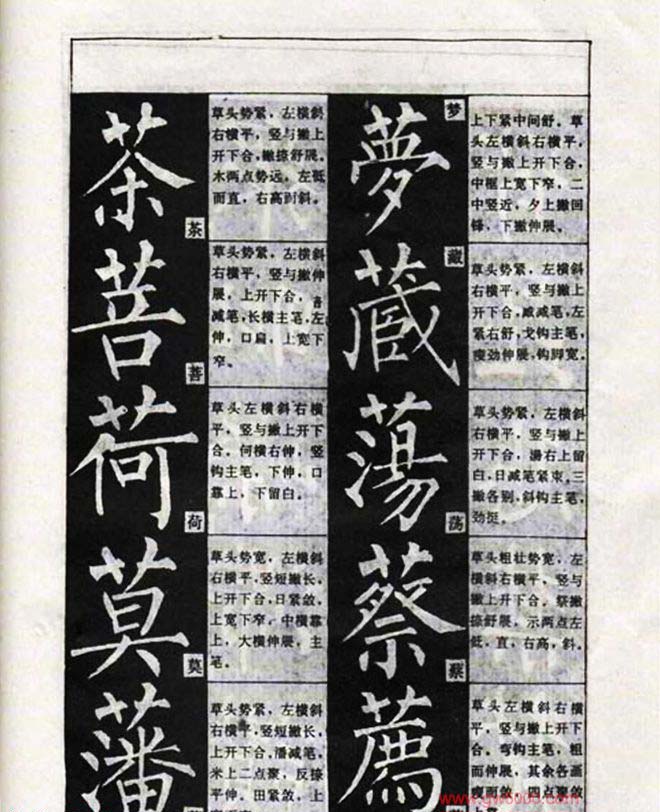 茶
茶
草头势紧，左横斜
右横平，竖与撇上
开下合，撇捺舒展。
木两点势远，左低
而直，右高而斜。
菩
善
草头势紧，左横斜
右横平，竖与撇伸
展，上开下合，音
减笔，长横主笔，左
伸，口扁，上宽下
窄。
荷
荷
草头左横斜右横
平，竖与撇上开下
合。何横右伸，竖
钩主笔，下伸，口
靠上，下留白。
莫
莫
草头势宽，左横斜
右横平，竖短撇长，
上开下合，日紧敛，
上宽下窄，中横靠
上，大横伸展，主
笔。
藩
草头势紧，左横斜
右横平，竖短撇长，
上开下合，潘减笔，
米上二点聚，反捺
平伸，田紧敛，上
夢
梦
上下紧中间舒。草
头左横斜右横平，
竖与撇上开下合，
中框上宽下窄，二
中竖近，夕上撇回
锋，下撇伸展。
蔵
藏
草头势紧，左横斜
右横平，竖与撇上
开下合，臧减笔，左
紧右舒，戈钩主笔，
瘦劲伸展，钩脚宽。
蕩
荡
草头势紧，左横斜
右横平，竖与撇上
开下合，汤右上留
白，日减笔紧束，三
撇各别，斜钩主笔，
劲挺。
蔡
蔡
草头粗壮势宽，左
横斜右横平，竖与
撇上开下合。祭撇
捺舒展，示两点左
低，直，右高，斜。
薦
草头左横斜右横
平，竖与撇上开下
合。弯钩主笔，粗
而伸展，其余各画
瘦而敛，四点紧敛